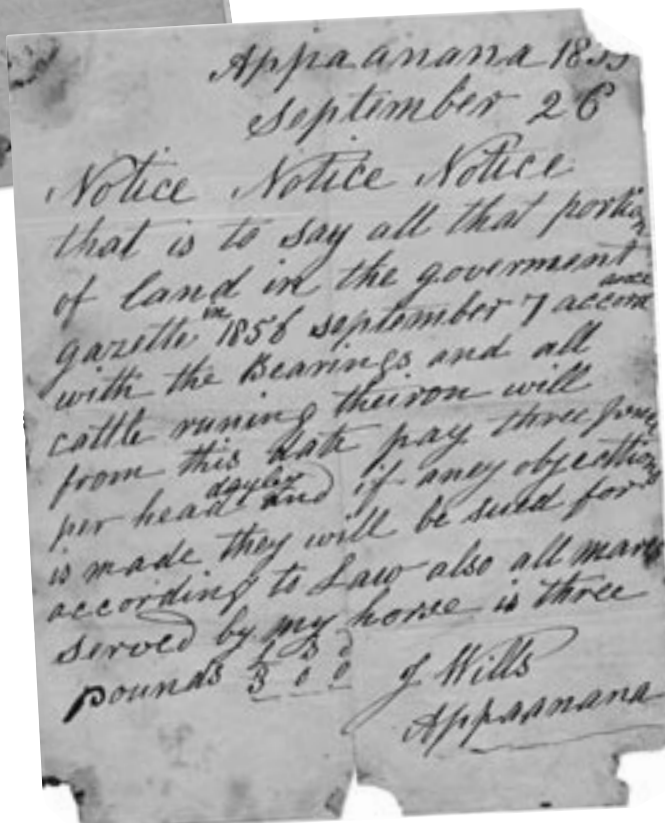 Appaanana 1855
September 26
Notice Notice Notice
that is to say all that portion
of land in the goverment
gazette in 1856 september 7 accord ance
with the Bearings and all
cattle runing theiron will
from this date pay three pence
per head dayley and if aney objections
is made they will be sued for
according to Law also all mares
served by my horse is three
pounds £ s d
3 0 0
J Wills
Appaanana